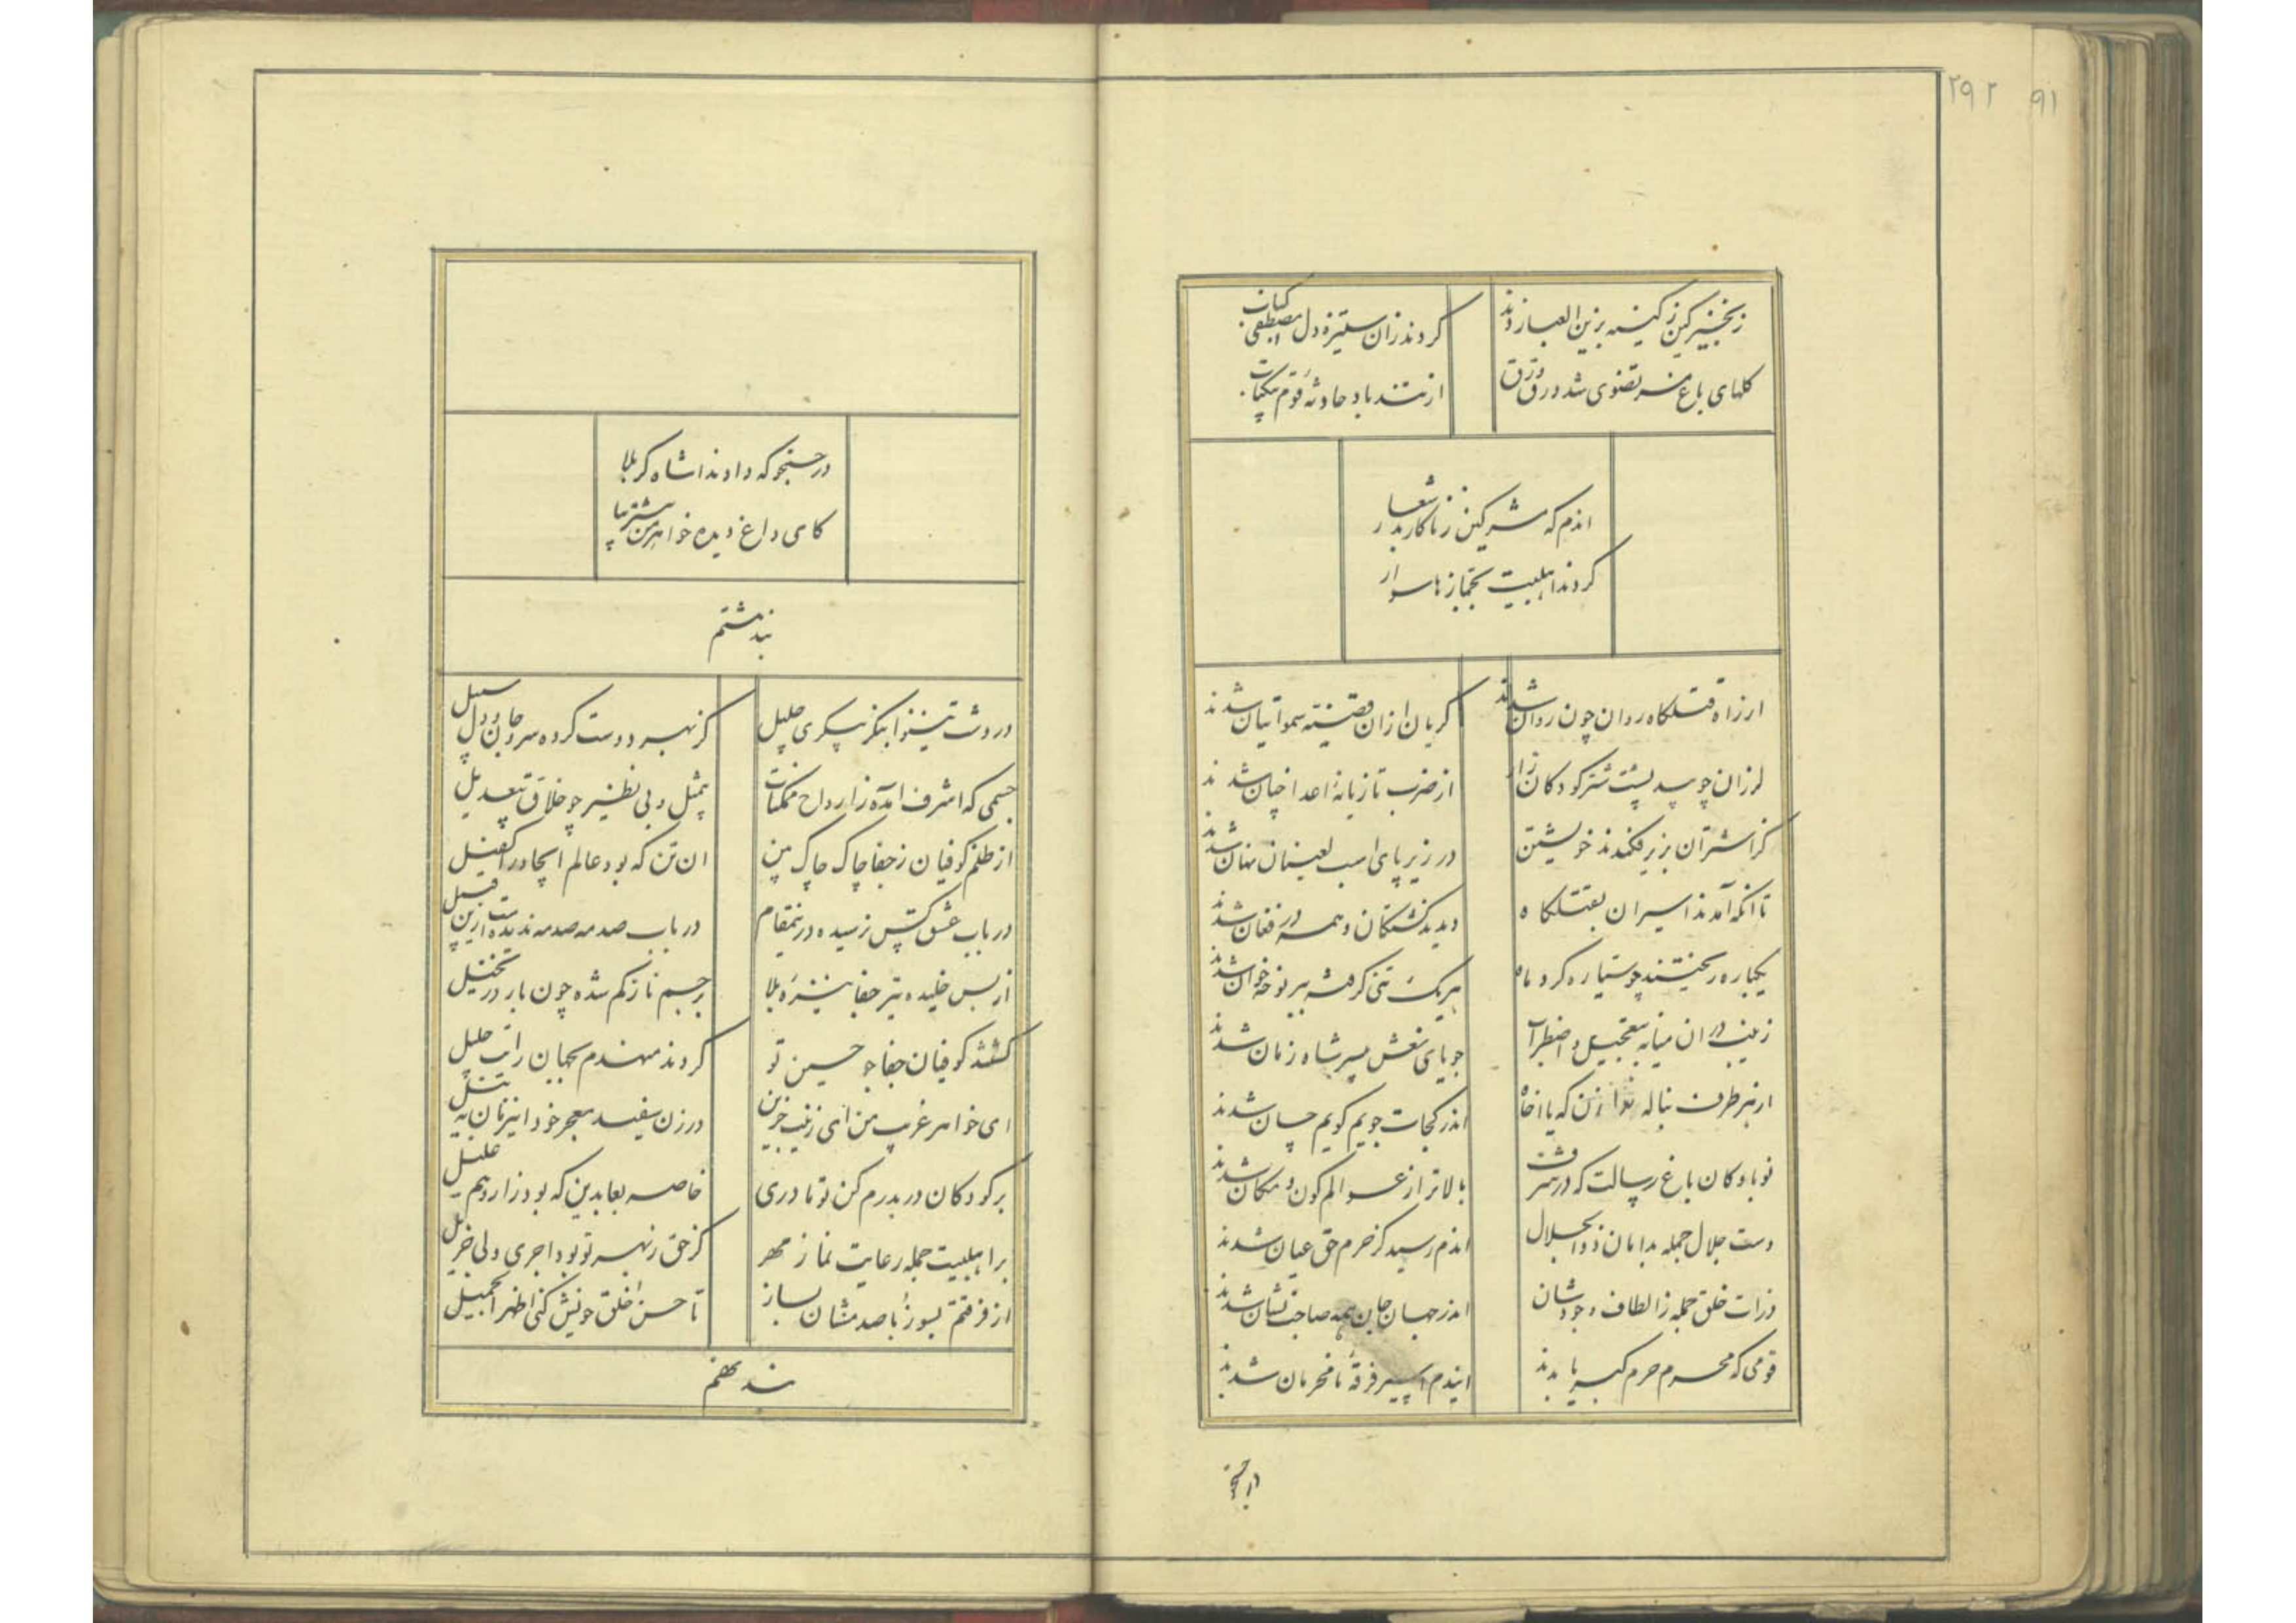 ۲۹۲ ۹۱
زنجیر کین ز کینه بزین العباد زدند
کردند زان ستیزه دل مصطفی کباب
کلهای باغ مرتضوی شد ورق ورق
از تند باد حادثه قوم
اندم که مشرکین زناکار بد شعار
کردند اهلبیت بجمازها سوار
از راه قتلکاه روان چون روان شدند
کریان ازان قضیه سمواتیان شدند
لرزان چو بید پشت شتر کودکان زار
از ضرب تازیانه اعدا چنان شدند
کز اشتران بزیر فکندند خویشتن
در زیر پای اسب لعینان نهان شدند
تا انکه آمدند اسیران بقتلکاه
دیدند کشتکان و همه در فغان شدند
یکباره ریختند چو سیاره کرد ماه
هر یک تنی کرفته ببر نوحه خوان شدند
زینب در ان میانه بتعجیل و اضطراب
جویای نعش پسر شاه زمان شدند
از هر طرف بناله نوا زن که یا اخاه
اندر کجات جویم کویم چسان شدند
نوباوکان باغ رسالت که در شرف
بالاتر از عوالم کون و مکان شدند
دست جلال جمله بدامان ذوالجلال
اندم رسید کز حرم حق عیان شدند
ذرات خلق جمله ز الطاف وجودشان
اندر جهان جان همه صاحب نشان شدند
قومی که محرم حرم کبریا بدند
ایندم اسیر فرقه نامحرمان شدند
در جستجو
در جستجو که داد ندا شاه کربلا
کای داغ دیده خواهر من بیشتر بیا
بند هشتم
در دشت نینوا بنکر پیکری جلیل
کز بهر دوست کرده سر و جان و دل سبیل
جسمی که اشرف آمده ز ارواح ممکنات
بیمثل و بی نظیر چو خلاق بیعدیل
از ظلم کوفیان ز جفا چاک چاک بین
ان تن که بود عالم ایجاد را کفیل
در باب عشق کس نرسیده درینمقام
در باب صدمه صدمه ندیده است ازین قبیل
از بس خلیده تیر جفا نیزه بلا
بر جسم نازکم شده چون بار در نخیل
کشتند کوفیان جفا جو حسین تو
کردند منهدم بجهان رایت جلیل
ای خواهر غریب من ای زینب حزین
در زن سفید معجر خود اینزمان به نیل
بر کودکان در بدرم کن تو مادری
خاصه بعابدین که بود زار و هم علیل
بر اهلبیت جمله رعایت نما ز مهر
کز حق ز بهر تو بود اجری ولی جزیل
از فرقتم بسوز با صد مشان بساز
تا حسن خلق خویش کنی اظهر الجمیل
بند نهم